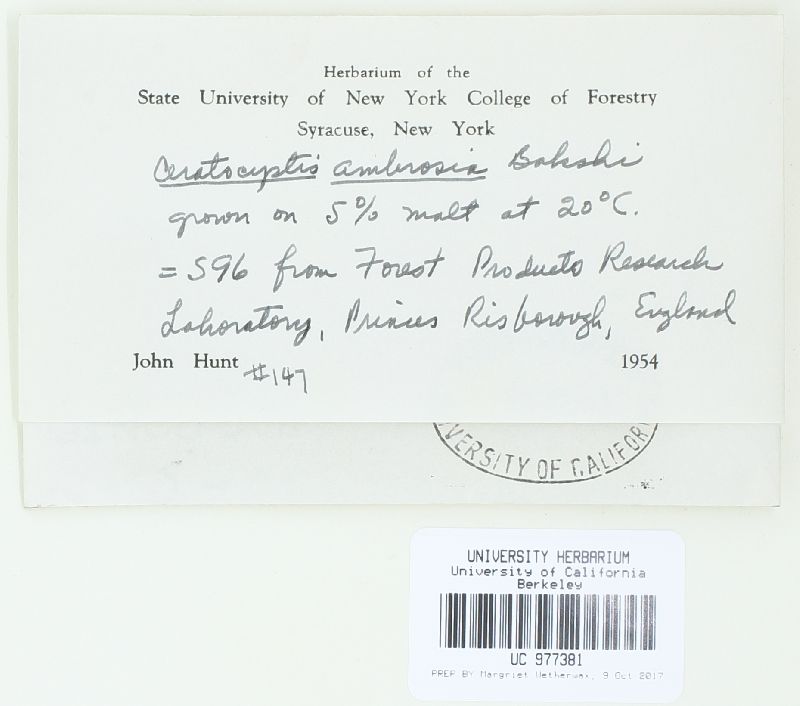 Herbarium of the
State University of New York College of Forestry
Syracuse, New York
Ceratocyptis ambrosia Bakshi
grown on 5% malt at 20°C.
= S96 from Forest Products Research
Laboratory, Princes Risborough, England
John Hunt #147 1954
VERSITY OF CALIFOR
UNIVERSITY HERBARIUM
University of California
Berkeley
UC 977381
PREP BY Margriet Wetherwax, 9 Oct 2017